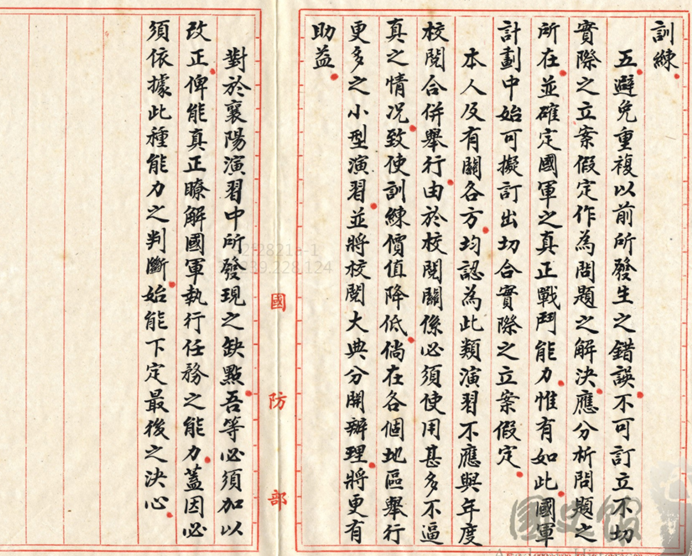 訓練。
五、避免重複以前所發生之錯誤。不可訂立不切
實際之立案假定作為問題之解決。應分析問題之
所在。並確定國軍之真正戰鬥能力。惟有如此。國軍
計劃中始可擬訂出切合實際之立案假定。
本人及有關各方。均認為此類演習不應與年度
校閱合併舉行。由於校閱關係必須使用甚多不逼
真之情況。致使訓練價值降低。倘在各個地區舉行
更多之小型演習。並將校閱大典分開辦理。將更有
助益。
對於襄陽演習中所發現之缺點。吾等必須加以
改正。俾能真正瞭解國軍執行任務之能力。蓋因必
須依據此種能力之判斷。始能下定最後之決心。
國防部
國史館